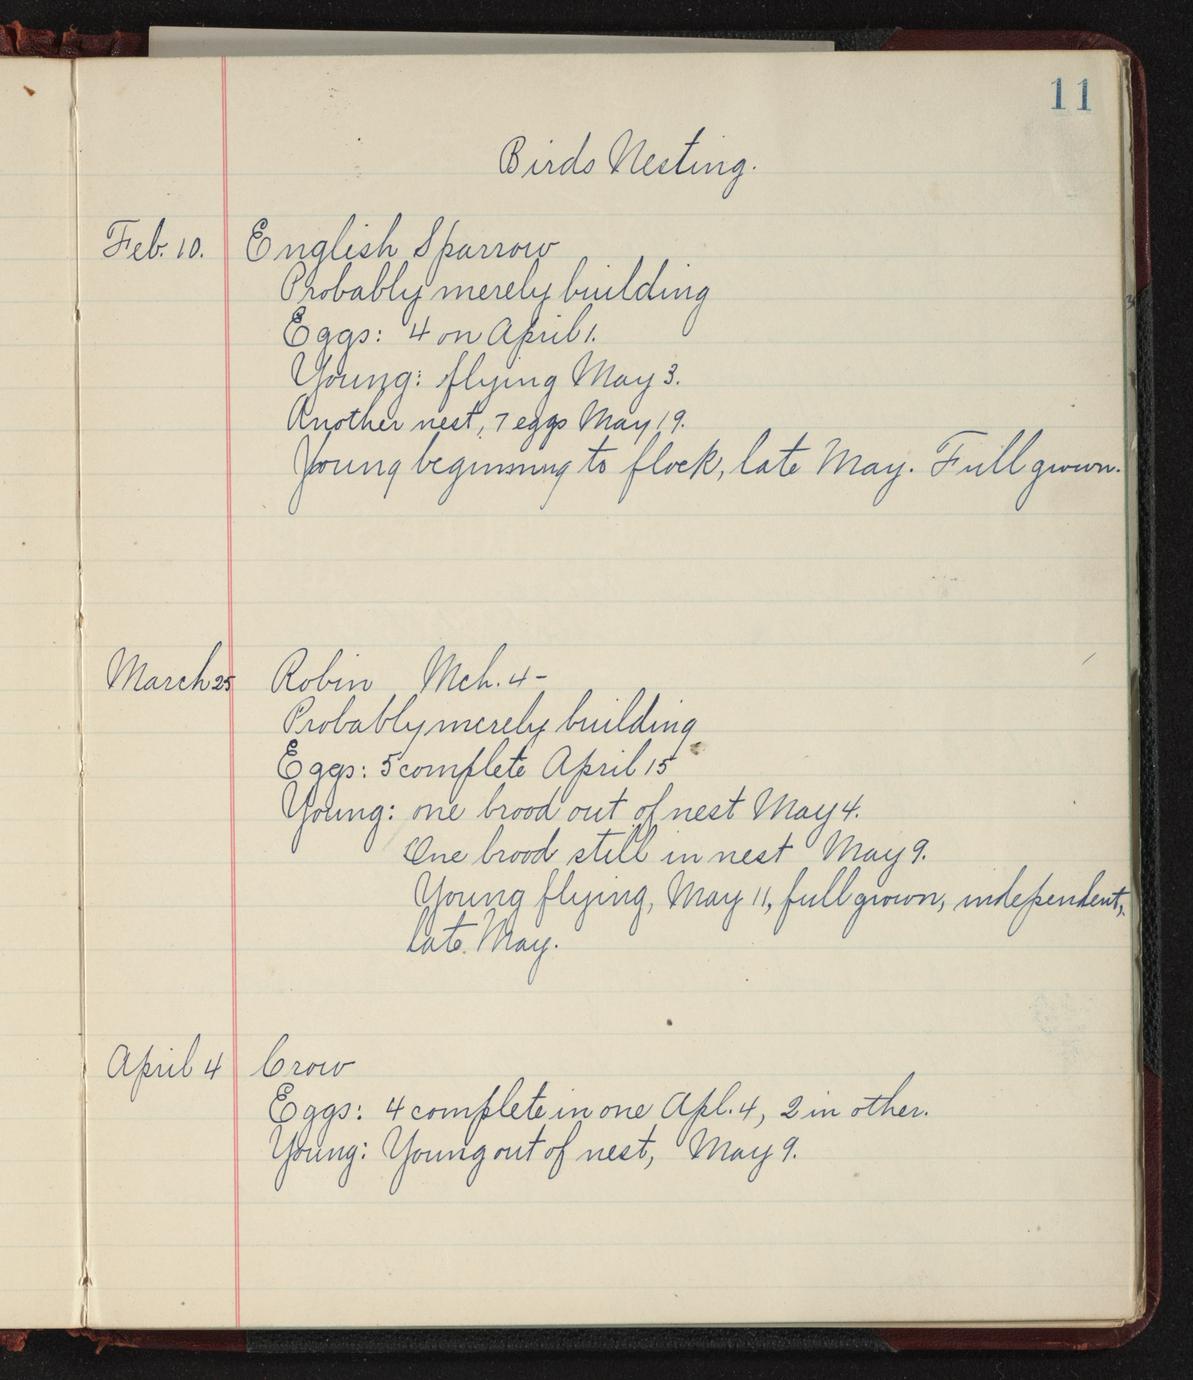 11
Birds Nesting.
Feb. 10. English Sparrow
Probably merely building
Eggs: 4 on April 1.
Young: flying May 3.
Another nest, 7 eggs May 19.
Young beginning to flock, late May. Full grown.
March 25 Robin Mch. 4-
Probably merely building
Eggs: 5 complete April 15
Young: one brood out of nest May 4.
One brood still in nest May 9.
Young flying, May 11, full grown, independent,
late May.
April 4 Crow
Eggs: 4 complete in one Apl. 4, 2 in other.
Young: Young out of nest, May 9.